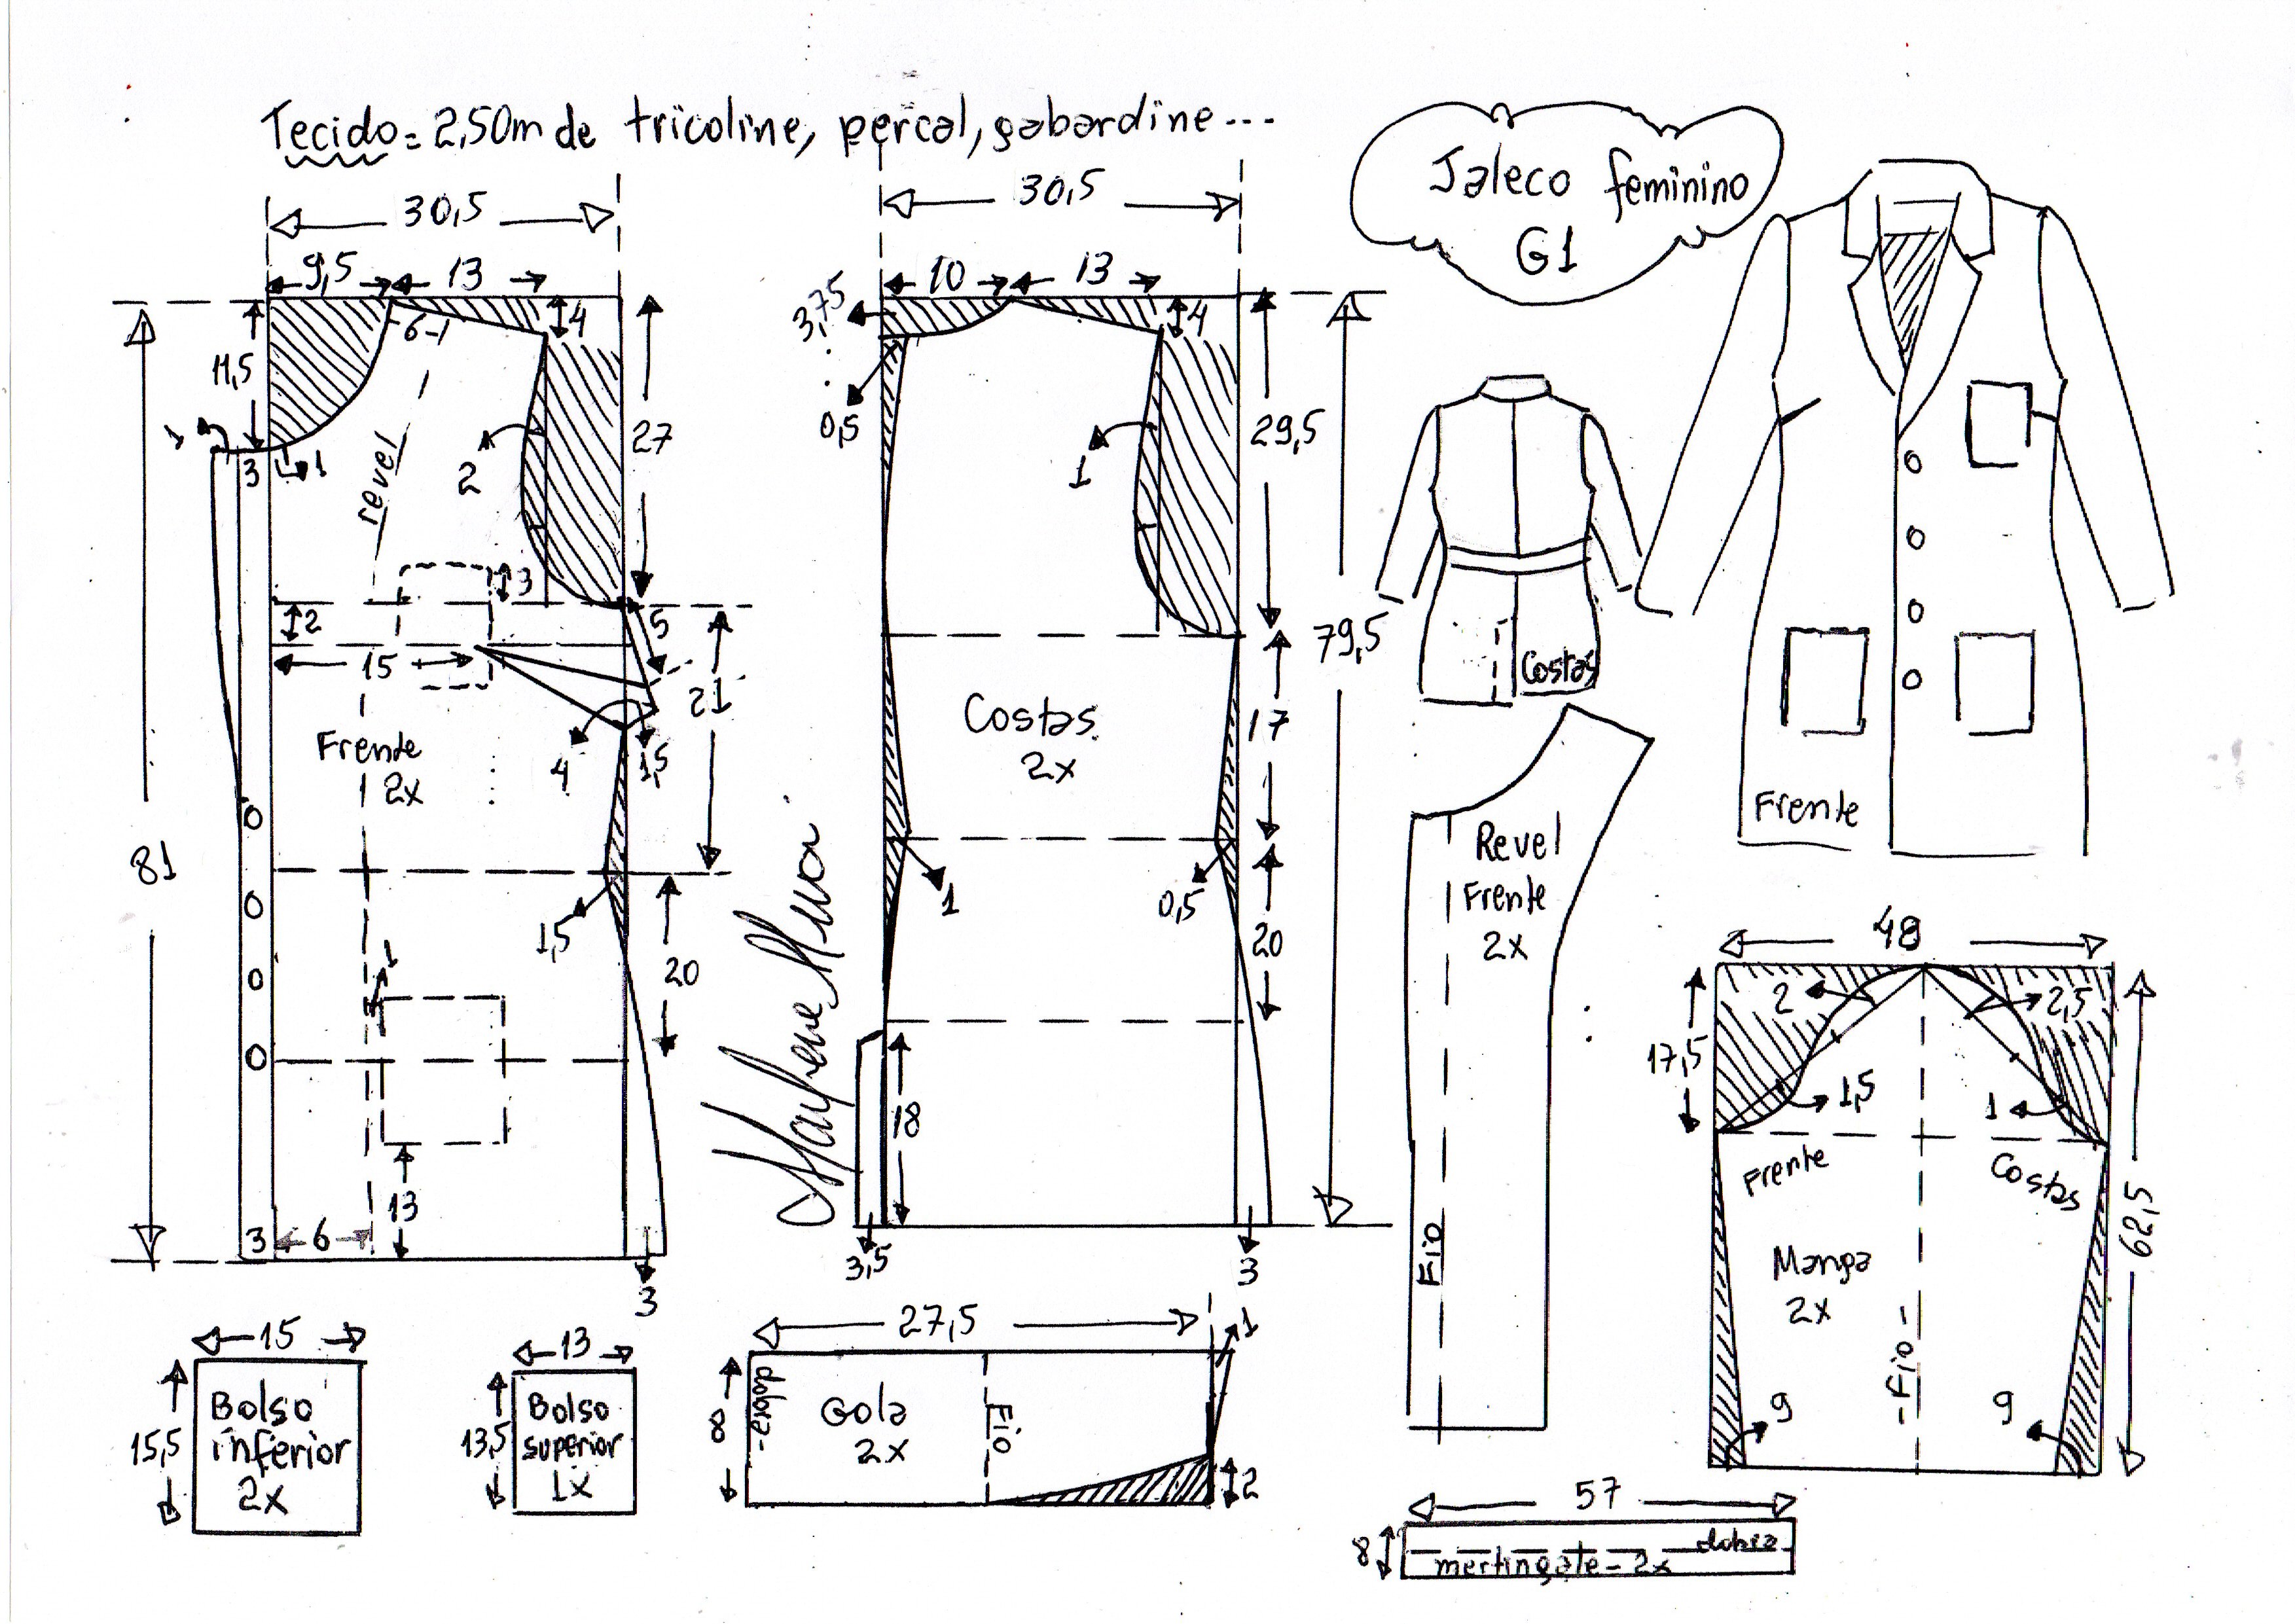 Tecido = 2,50m de tricoline, percal, gabardine...
Jaleco feminino
G1
30,5
9,5
13
4
6
11,5
1
3
1
2
27
revel
3
2
5
15
21
4
1,5
Frente
2x
81
1,5
20
1
13
3
6
3
30,5
10
13
3,75
4
0,5
1
29,5
79,5
Costas
2x
17
1
0,5
20
18
3,5
3
Costas
Frente
Revel
Frente
2x
Fio
48
2
2,5
17,5
1,5
1
Frente
Costas
Manga
2x
Fio
62,5
9
9
15
15,5
Bolso
inferior
2x
13
13,5
Bolso
superior
1x
27,5
1
8
dobra
Gola
2x
Fio
2
57
8
dobra
mertingate - 2x